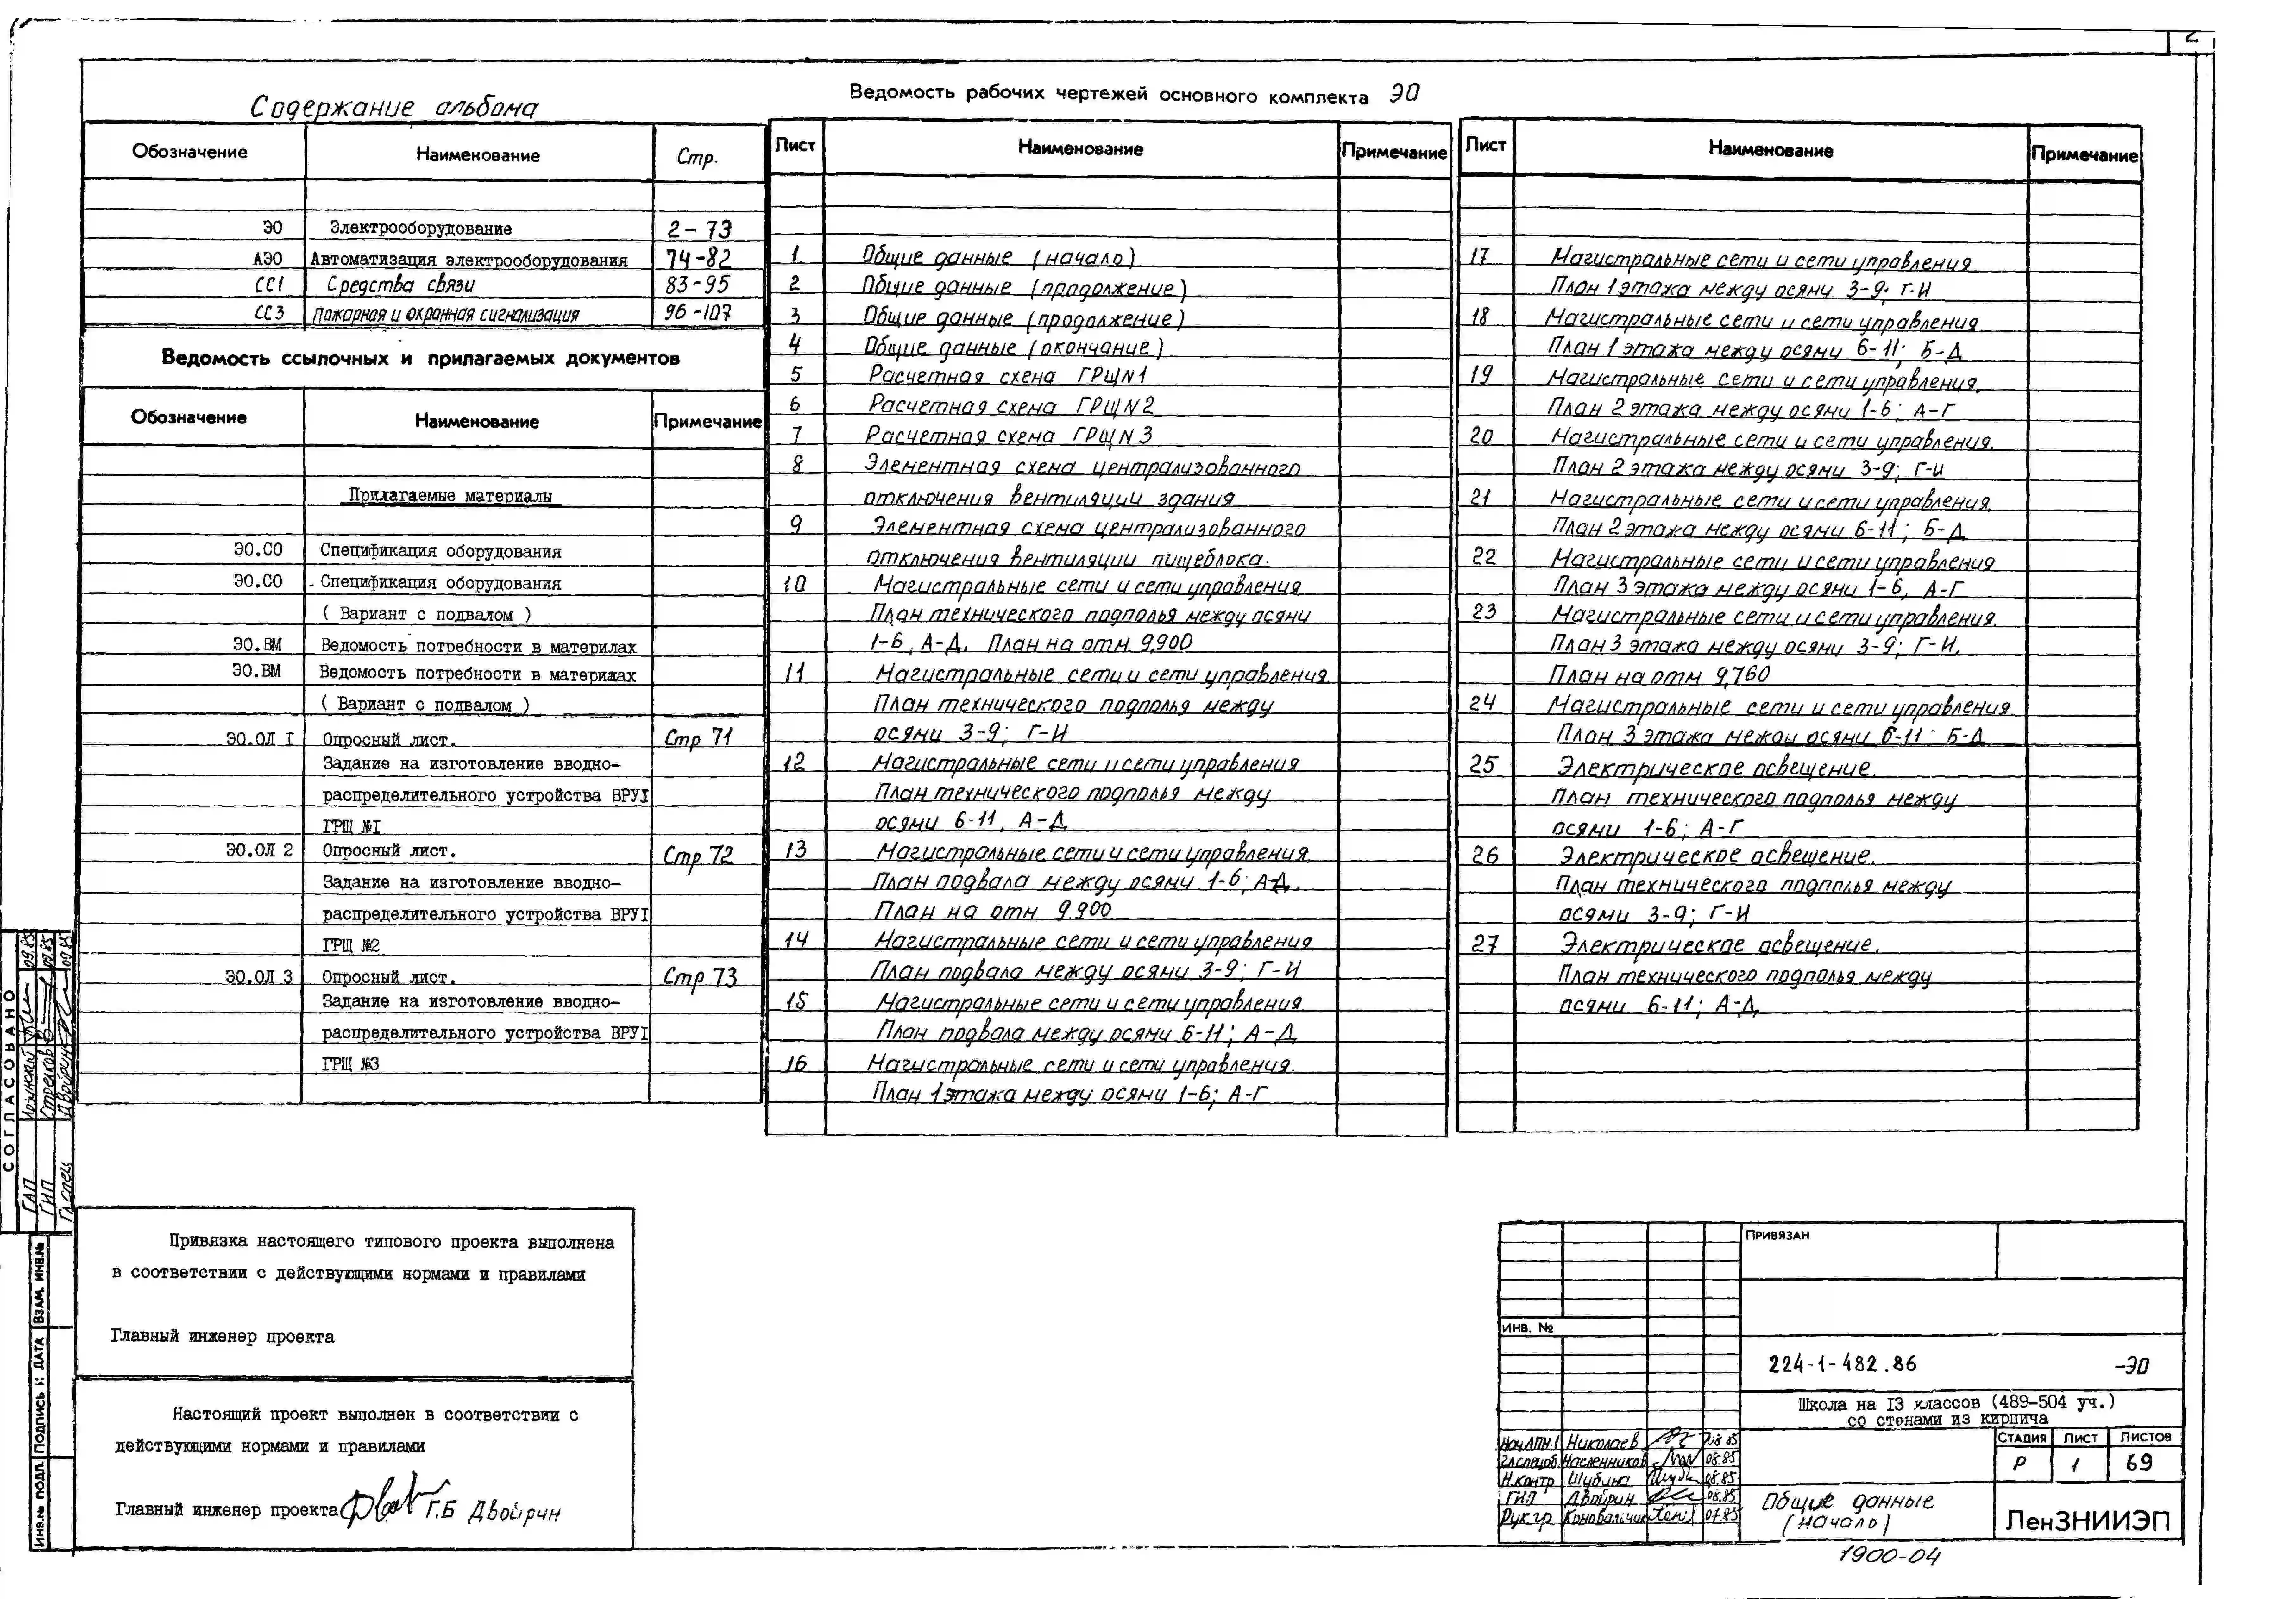 2
Содержание альбома
Обозначение Наименование Стр.
ЭО Электрооборудование 2-73
АЭО Автоматизация электрооборудования 74-82
СС1 Средства связи 83-95
СС3 Пожарная и охранная сигнализация 96-107
Ведомость ссылочных и прилагаемых документов
Обозначение Наименование Примечание
Прилагаемые материалы
ЭО.СО Спецификация оборудования
ЭО.СО - Спецификация оборудования
( Вариант с подвалом )
ЭО.ВМ Ведомость потребности в материлах
ЭО.ВМ Ведомость потребности в материлах
( Вариант с подвалом )
ЭО.ОЛ I Опросный лист. Стр 71
Задание на изготовление вводно-
распределительного устройства ВРУI
ГРЩ №I
ЭО.ОЛ 2 Опросный лист. Стр 72
Задание на изготовление вводно-
распределительного устройства ВРУI
ГРЩ №2
ЭО.ОЛ 3 Опросный лист. Стр 73
Задание на изготовление вводно-
распределительного устройства ВРУI
ГРЩ №3
Ведомость рабочих чертежей основного комплекта ЭО
Лист Наименование Примечание
1. Общие данные (начало)
2 Общие данные (продолжение)
3 Общие данные (продолжение)
4 Общие данные (окончание)
5 Расчетная схема ГРЩN1
6 Расчетная схема ГРЩN2
7 Расчетная схема ГРЩN3
8 Элементная схема централизованного
отключения вентиляции здания
9 Элементная схема централизованного
отключения вентиляции пищеблока.
10 Магистральные сети и сети управления
План технического подполья между осями
1-6, А-Д. План на отм. 9,900
11 Магистральные сети и сети управления
План технического подполья между
осями 3-9; Г-И
12 Магистральные сети и сети управления
План технического подполья между
осями 6-11, А-Д
13 Магистральные сети и сети управления.
План подвала между осями 1-6; А-Д.
План на отм 9.900
14 Магистральные сети и сети управления
План подвала между осями 3-9; Г-И
15 Магистральные сети и сети управления.
План подвала между осями 6-11; А-Д
16 Магистральные сети и сети управления.
План 1 этажа между осями 1-6; А-Г
Лист Наименование Примечание
17 Магистральные сети и сети управления
План 1 этажа между осями 3-9; Г-И
18 Магистральные сети и сети управления
План 1 этажа между осями 6-11; Б-Д
19 Магистральные сети и сети управления.
План 2 этажа между осями 1-6; А-Г
20 Магистральные сети и сети управления.
План 2 этажа между осями 3-9; Г-И
21 Магистральные сети и сети управления.
План 2 этажа между осями 6-11; Б-Д
22 Магистральные сети и сети управления
План 3 этажа между осями 1-6, А-Г
23 Магистральные сети и сети управления.
План 3 этажа между осями 3-9; Г-И.
План на отм 9,760
24 Магистральные сети и сети управления.
План 3 этажа между осями 6-11; Б-Д
25 Электрическое освещение.
План технического подполья между
осями 1-6; А-Г
26 Электрическое освещение.
План технического подполья между
осями 3-9; Г-И
27 Электрическое освещение.
План технического подполья между
осями 6-11; А-Д
СОГЛАСОВАНО
ГАП 09.85
ГИП Стрелков 09.85
Гл.спец Двойрин 09.85
ВЗАМ. ИНВ.№
ПОДПИСЬ И ДАТА
ИНВ.№ ПОДЛ.
Привязка настоящего типового проекта выполнена
в соответствии с действующими нормами и правилами
Главный инженер проекта
Настоящий проект выполнен в соответствии с
действующими нормами и правилами
Главный инженер проекта Г.Б Двойрин
ПРИВЯЗАН
ИНВ. №
224-1-482.86 -ЭО
Школа на 13 классов (489-504 уч.)
со стенами из кирпича
Нач АПМ-1 Николаев 08.85
Гл.спец.об. Масленников 08.85
Н.контр Шубина 08.85
ГИП Двойрин 08.85
Рук.гр Коновальчик 07.85
СТАДИЯ ЛИСТ ЛИСТОВ
Р 1 69
Общие данные
(начало)
ЛенЗНИИЭП
1900-04